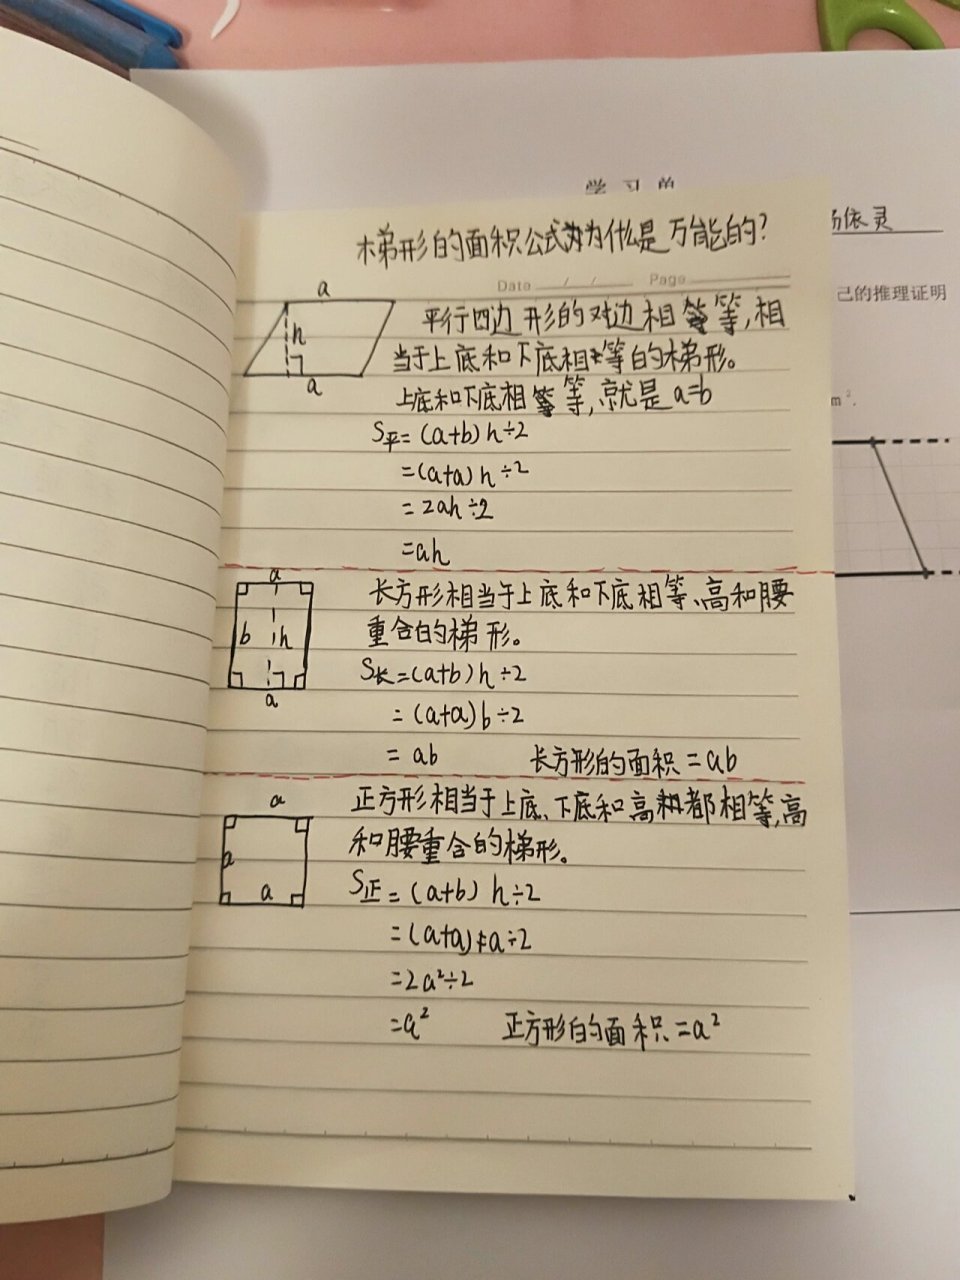 学习单
杨依灵
梯形的面积公式为什么是万能的?
Date / / Page
己的推理证明
a
h
a
平行四边形的对边相等,相
当于上底和下底相等的梯形。
上底和下底相等,就是a=b
m².
S平=(a+b)h÷2
=(a+a)h÷2
=2ah÷2
=ah
a
b
h
a
长方形相当于上底和下底相等、高和腰
重合的梯形。
S长=(a+b)h÷2
=(a+a)b÷2
=ab 长方形的面积=ab
a
a
a
正方形相当于上底、下底和高都相等,高
和腰重合的梯形。
S正=(a+b)h÷2
=(a+a)a÷2
=2a²÷2
=a² 正方形的面积=a²